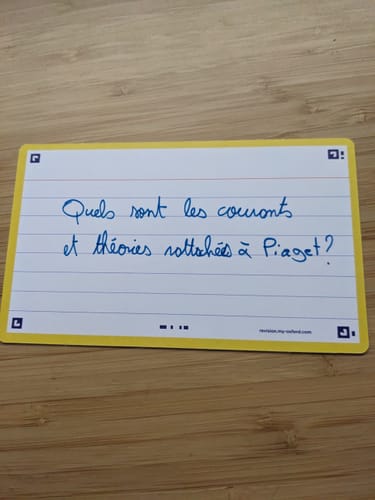 Quels sont les courants
et théories rattachés à Piaget?
revision.my-oxford.com